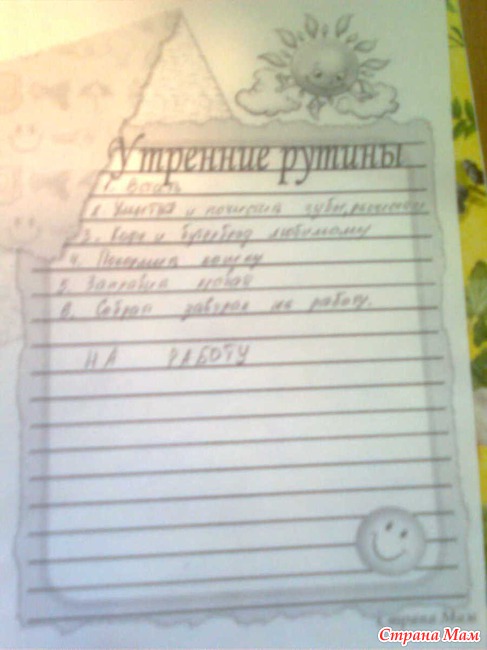 Утренние рутины
1. Встать
2. Умыться и почистить зубы,
3. Кофе и бутерброд любимому
4. Покормить кошку
5. Заправить кровать
6. Собрать завтрак на работу.
НА РАБОТУ
Страна Мам
Страна Мам